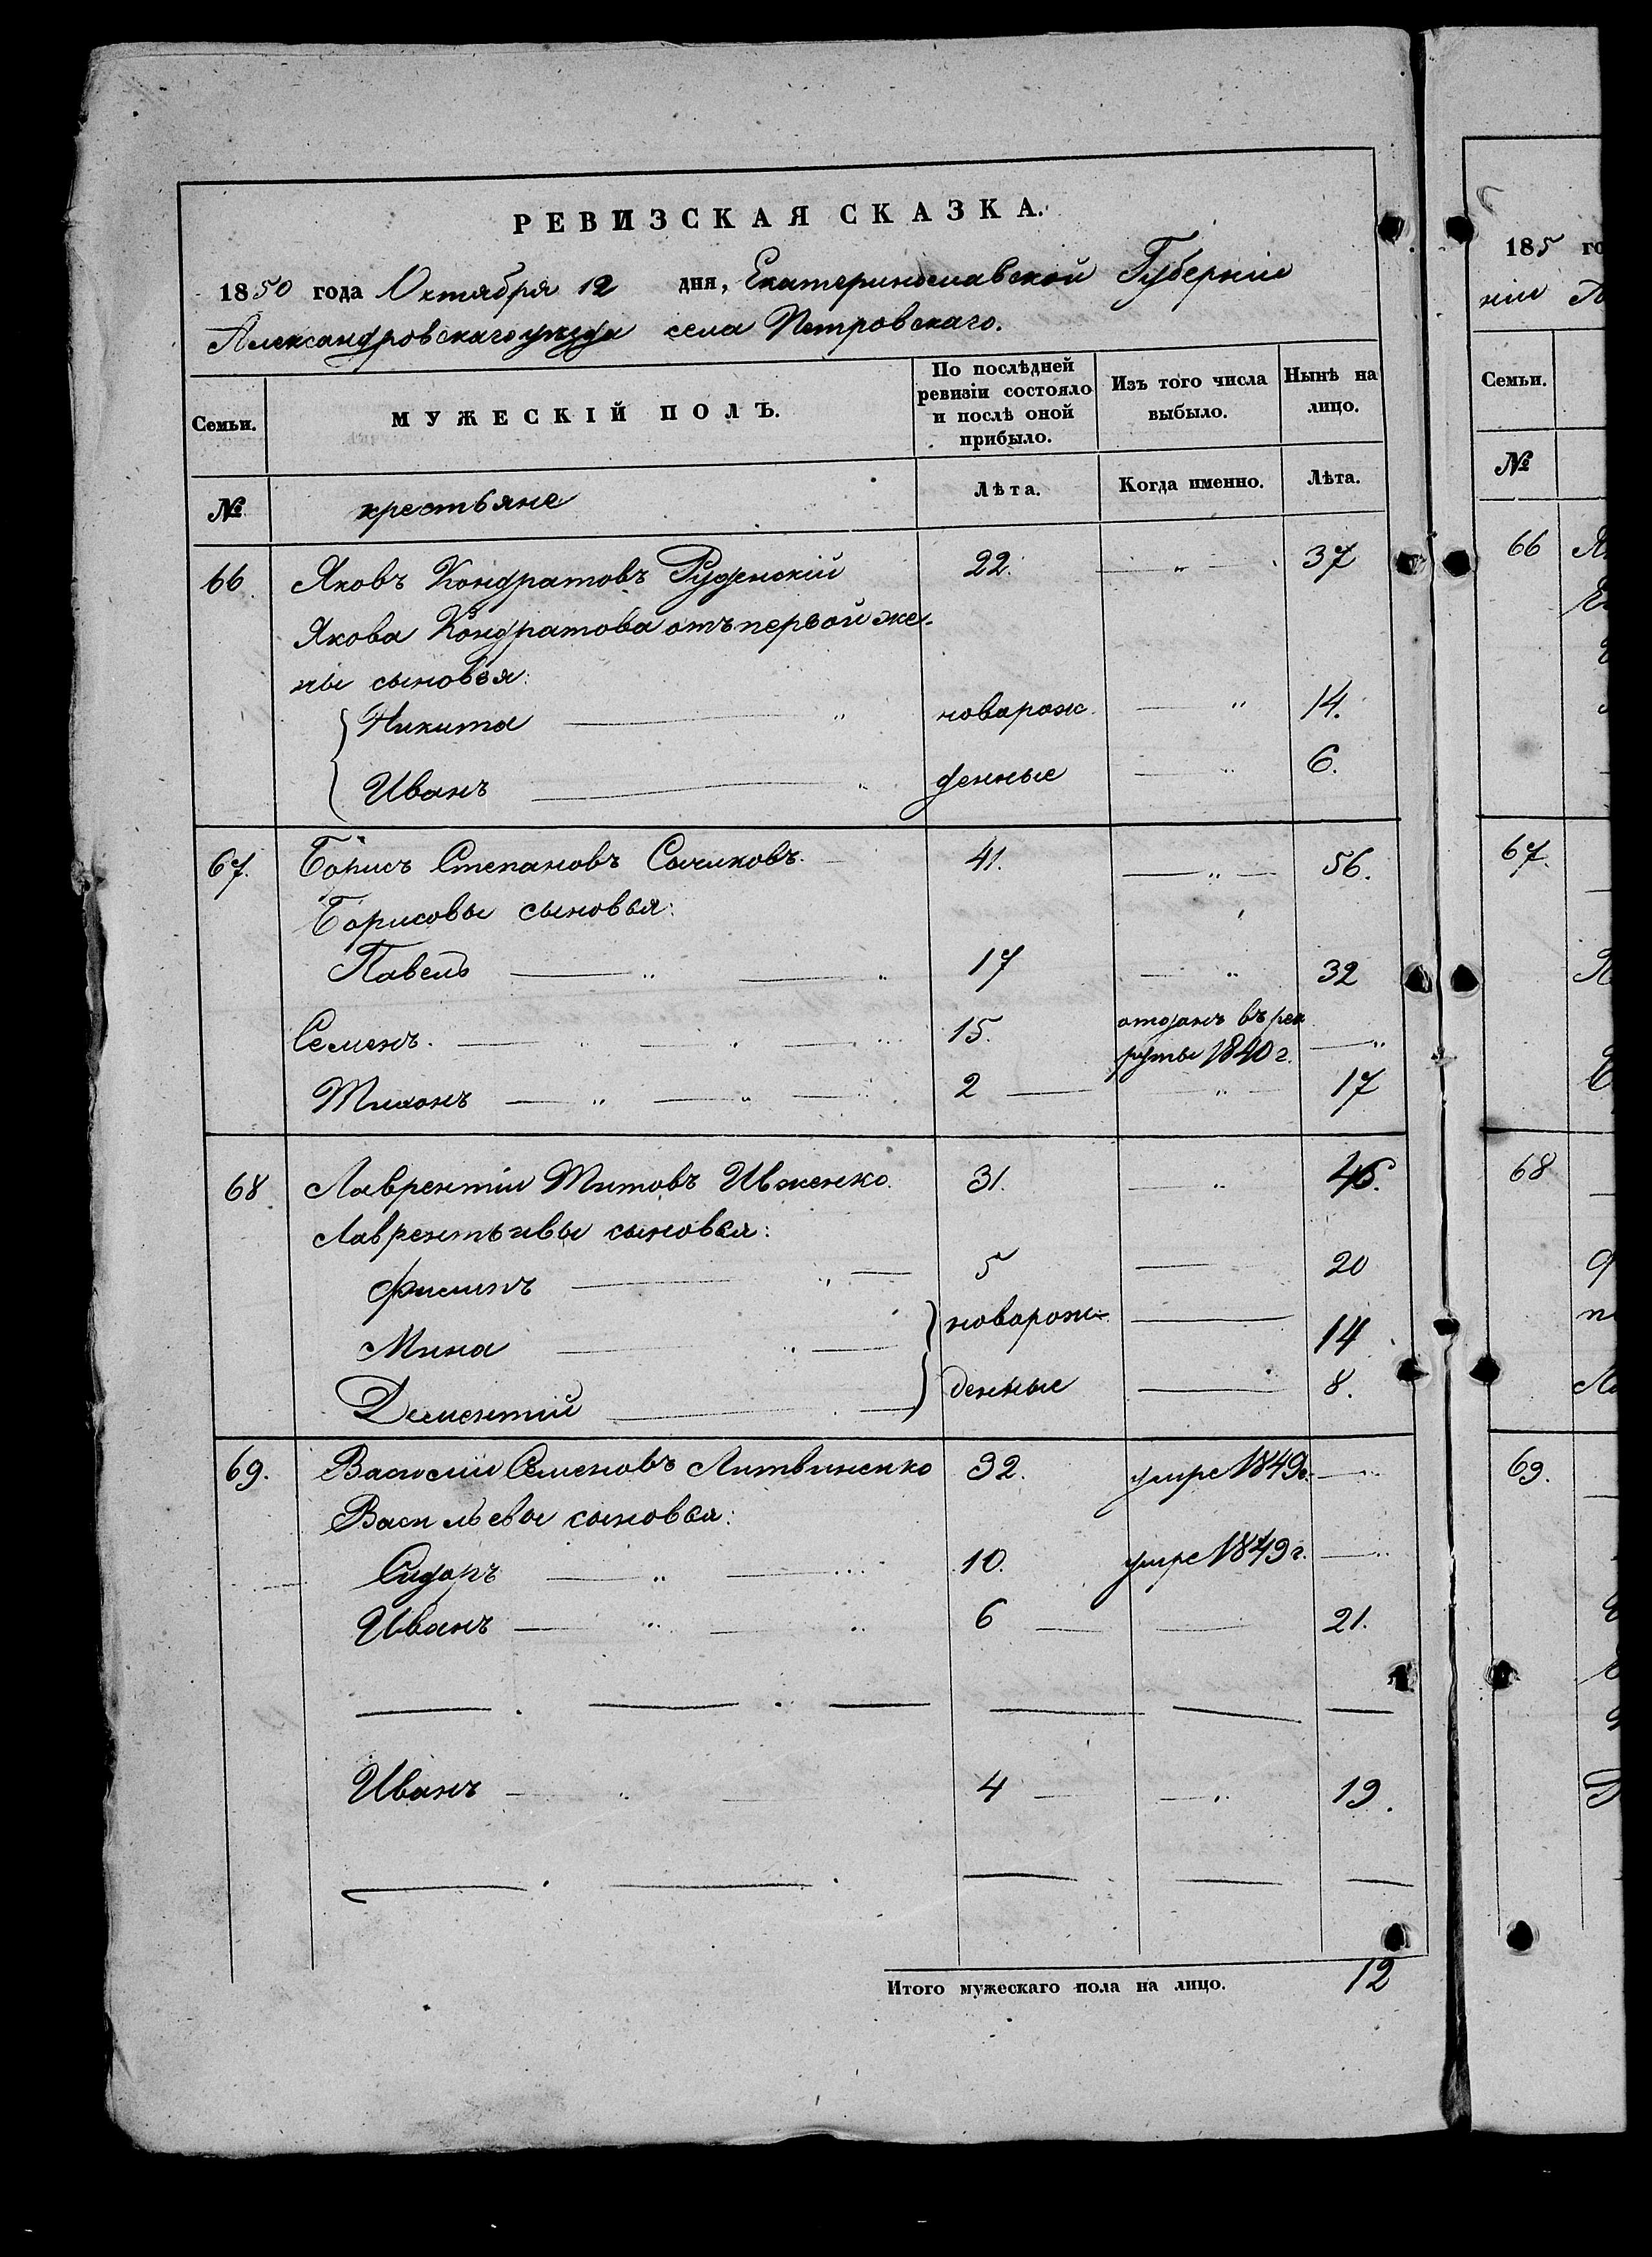 РЕВИЗСКАЯ СКАЗКА.
1850 года Октября 12 дня, Екатеринославской Губерніи
Александровскаго уѣзда села Петровскаго.
Семьи. МУЖЕСКІЙ ПОЛЪ. По послѣдней ревизіи состояло и послѣ оной прибыло. Изъ того числа выбыло. Нынѣ на лицо.
№ крестьяне Лѣта. Когда именно. Лѣта.
66. Яковъ Кондратовъ Руденскій 22. — „ — 37
Якова Кондратова отъ первой же-
ны сыновья:
Никита — „ новарож — „ 14.
Иванъ — „ денные — „ 6.
67. Борисъ Степановъ 41. — „ — 56.
Борисовы сыновья:
Павелъ — „ — „ 17 — „ 32
Семенъ. — „ — „ — „ 15. отданъ въ рек
руты 1840 г. — „
Тихонъ — „ — „ — 2 — „ — 17
68 Лаврентій Титовъ Ивженко. 31. — „ 46.
Лаврентьивы сыновья:
Филипъ — „ — 5 — 20
Мина — „ — новарож — 14
Дементій — денные — 8.
69. Василий Семеновъ Литвиненко 32. умре 1849г. — „
Васильевы сыновья:
Сидоръ — „ — „ 10. умре 1849 г. — „
Иванъ — „ — „ 6 — — 21.
Иванъ — „ — 4 — — „ 19.
Итого мужескаго пола на лицо. 12
185 го
ніи
Семьи.
№
66
67.
68
69.